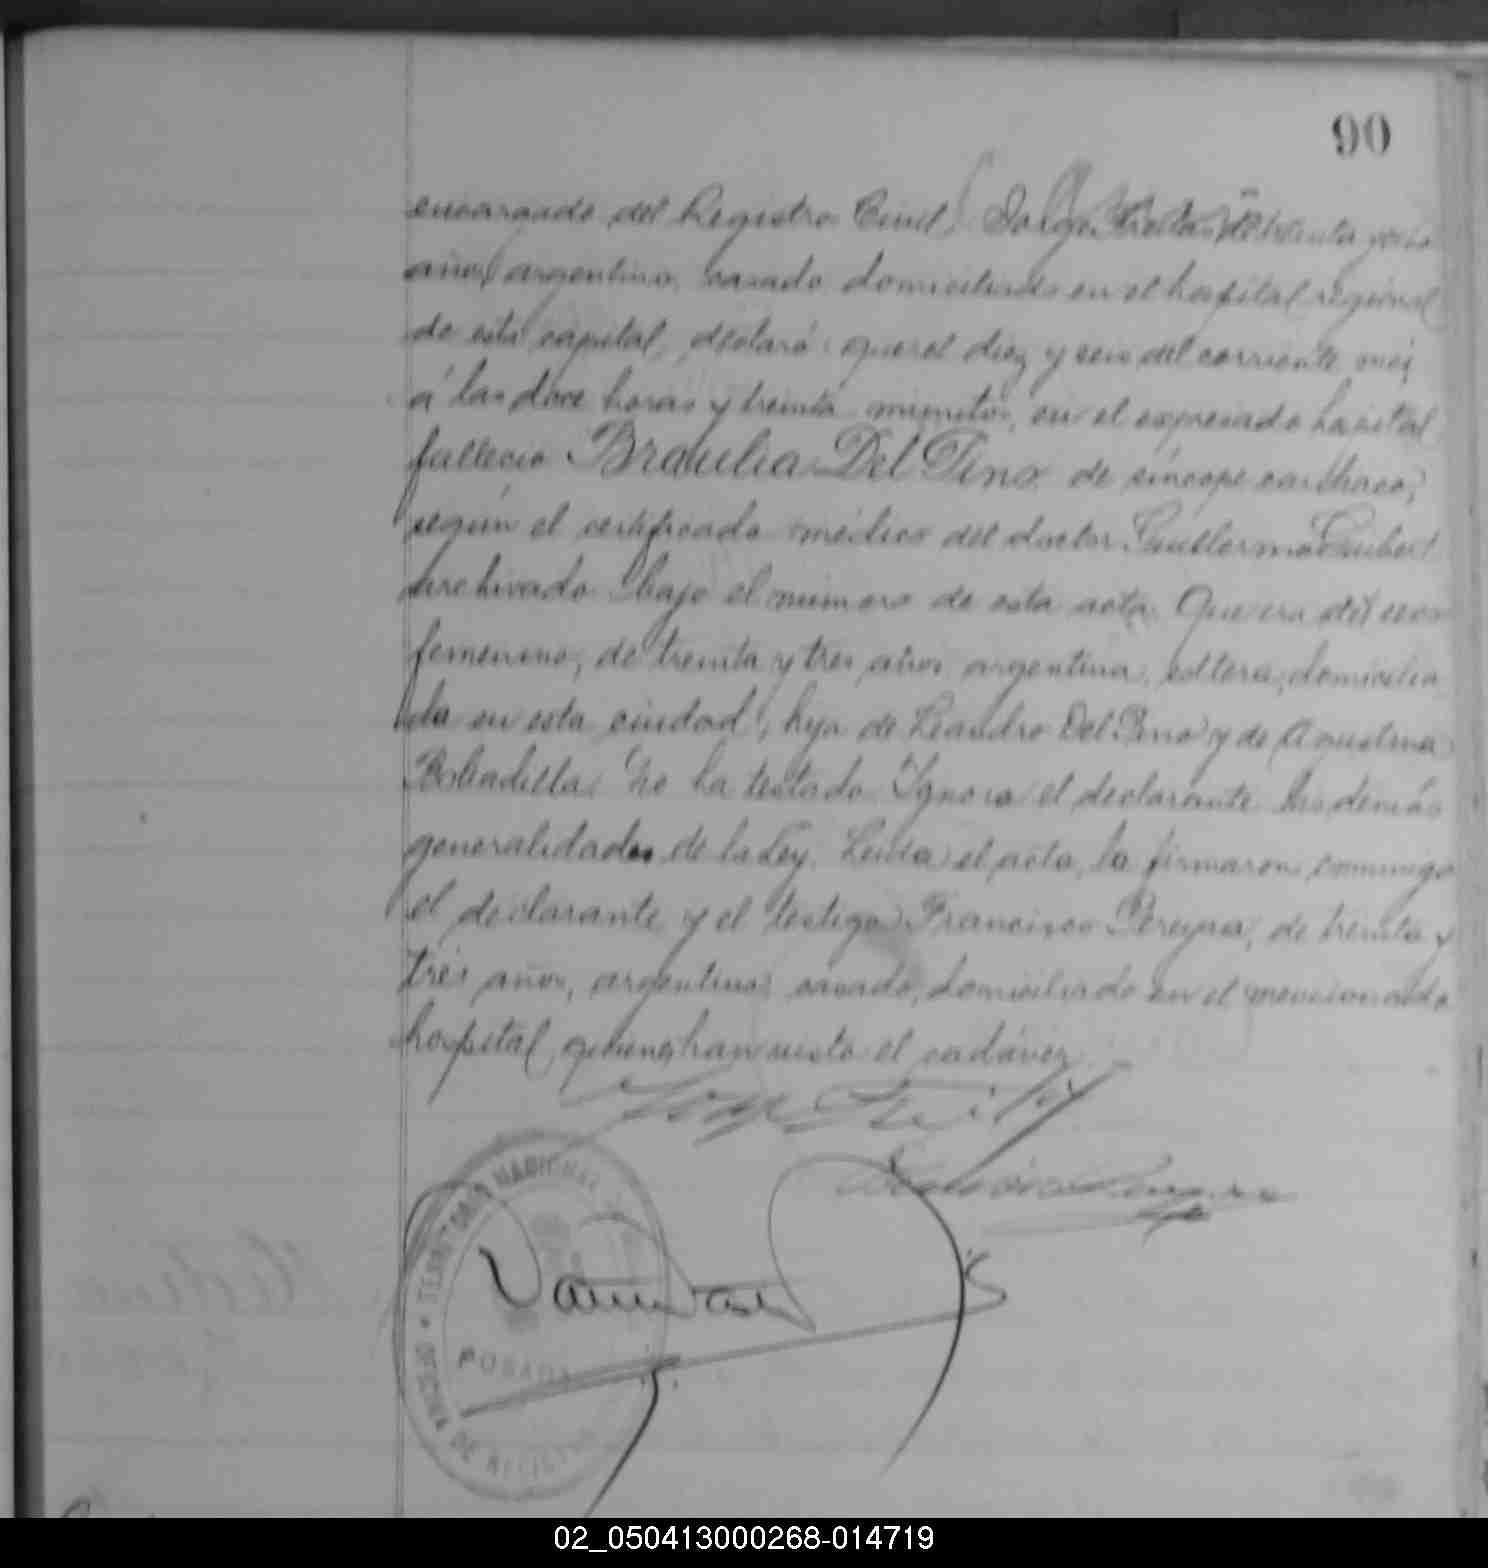 90
encargado del Registro Civil, Jorge Freitas de treinta y ocho
años, argentino, casado domiciliado en el hospital regional
de esta capital, declaró: que el diez y seis del corriente mes
á las doce horas y treinta minutos, en el expresado hospital
falleció Braulia Del Pino de síncope cardiaco,
según el certificado médico del doctor Guillermo
archivado bajo el número de esta acta. Que era del sexo
femenino, de treinta y tres años argentina, soltera, domicilia
da en esta ciudad, hija de Leandro Del Pino y de Agustina
Bobadilla. No ha testado. Ignora el declarante las demás
generalidades de la Ley. Leída el acta, la firmaron conmigo
el declarante y el testigo Francisco Pereyra, de treinta y
tres años, argentino, casado, domiciliado en el mencionado
hospital, quienes han visto el cadáver.
TERRITORIO NACIONAL
POSADAS
OFICINA DE REGISTRO
02_050413000268-014719